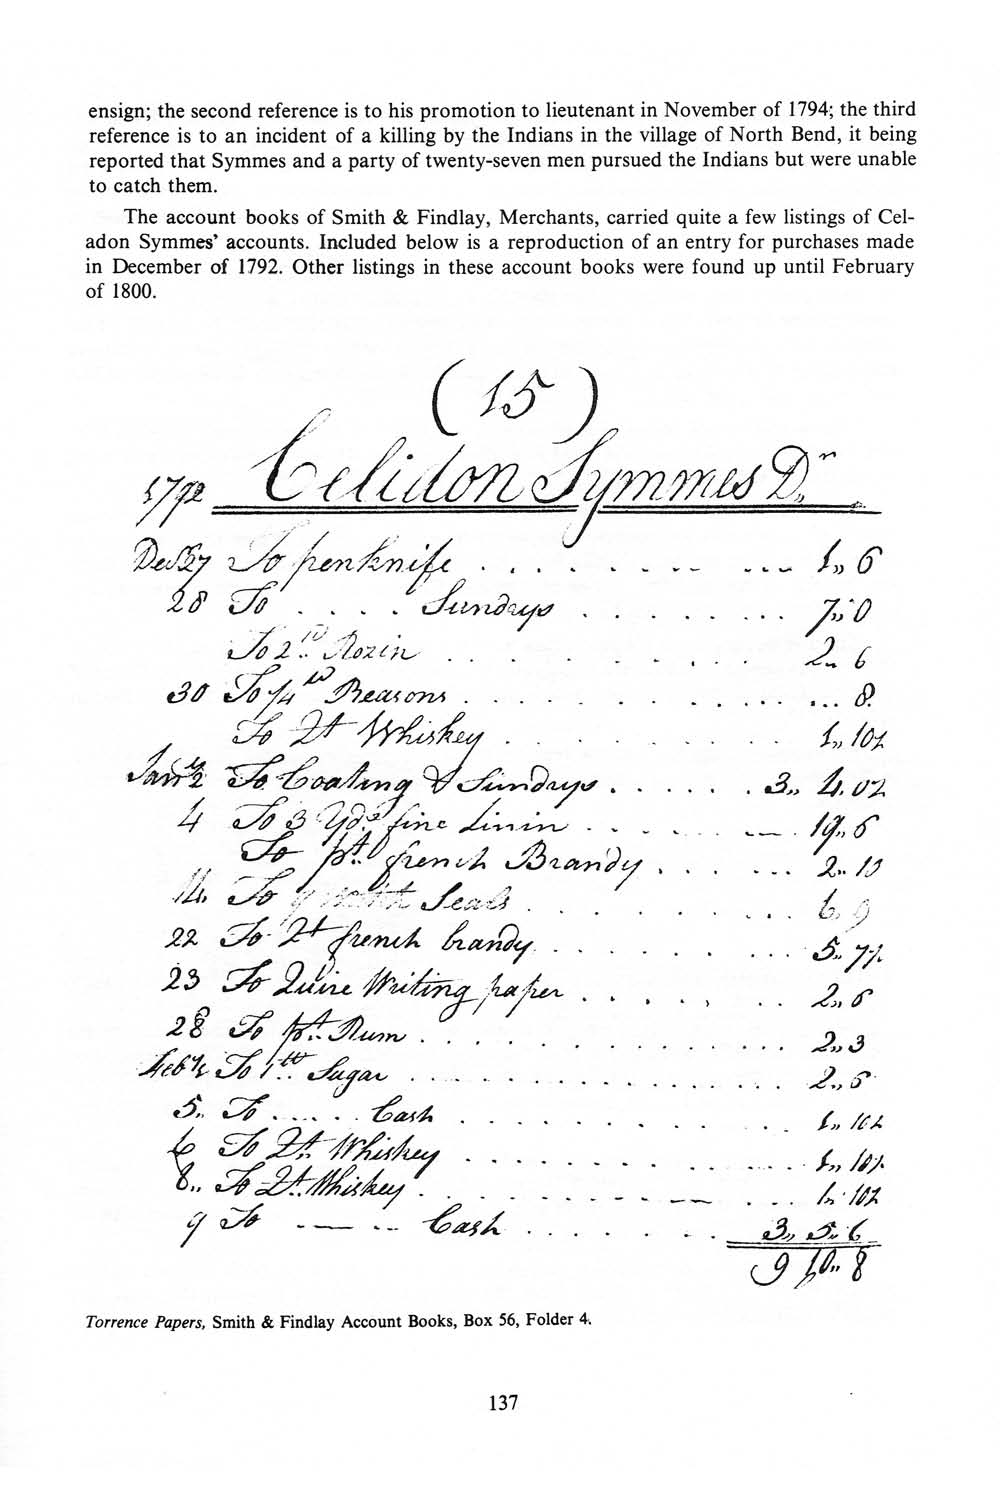 ensign; the second reference is to his promotion to lieutenant in November of 1794; the third
reference is to an incident of a killing by the Indians in the village of North Bend, it being
reported that Symmes and a party of twenty-seven men pursued the Indians but were unable
to catch them.
The account books of Smith & Findlay, Merchants, carried quite a few listings of Cel-
adon Symmes' accounts. Included below is a reproduction of an entry for purchases made
in December of 1792. Other listings in these account books were found up until February
of 1800.
( 15 )
1792 Celidon Symmes Dr
27 To penknife . . . . . . . 1,, 6
28 To . . . . Sundrys . . . . . . . 7,, 0
To 2 Rozin . . . . . . . 2,, 6
30 To 1/4 Reasons . . . . . . . 8.
To Qt Whiskey . . . . . . . 1,, 10½
Jany 2 To Coating & Sundrys . . . . . . 3,, 4. 0½
4 To 3 Yds fine Linin . . . . . . 19,, 6
To pt. french Brandy . . . . . . 2,, 10
14. To Seals . . . . . . . 6, 9
22 To Qt french brandy . . . . . . . 5,, 7½
23 To Quire Writing paper . . . . . . 2,, 6
28 To pt. Rum . . . . . . . 2,, 3
To 1 Sugar . . . . . . . 2,, 6
5,, To . . . . . Cash . . . . . . . 1,, 10½
6 To Qt. Whiskey . . . . . . . 1,, 10½
8,, To Qt. Whiskey . . . . . . . 1,, 10½
9 To . . . . Cash . . . . . . . 3,, 5,, 6
9 10,, 8
Torrence Papers, Smith & Findlay Account Books, Box 56, Folder 4.
137